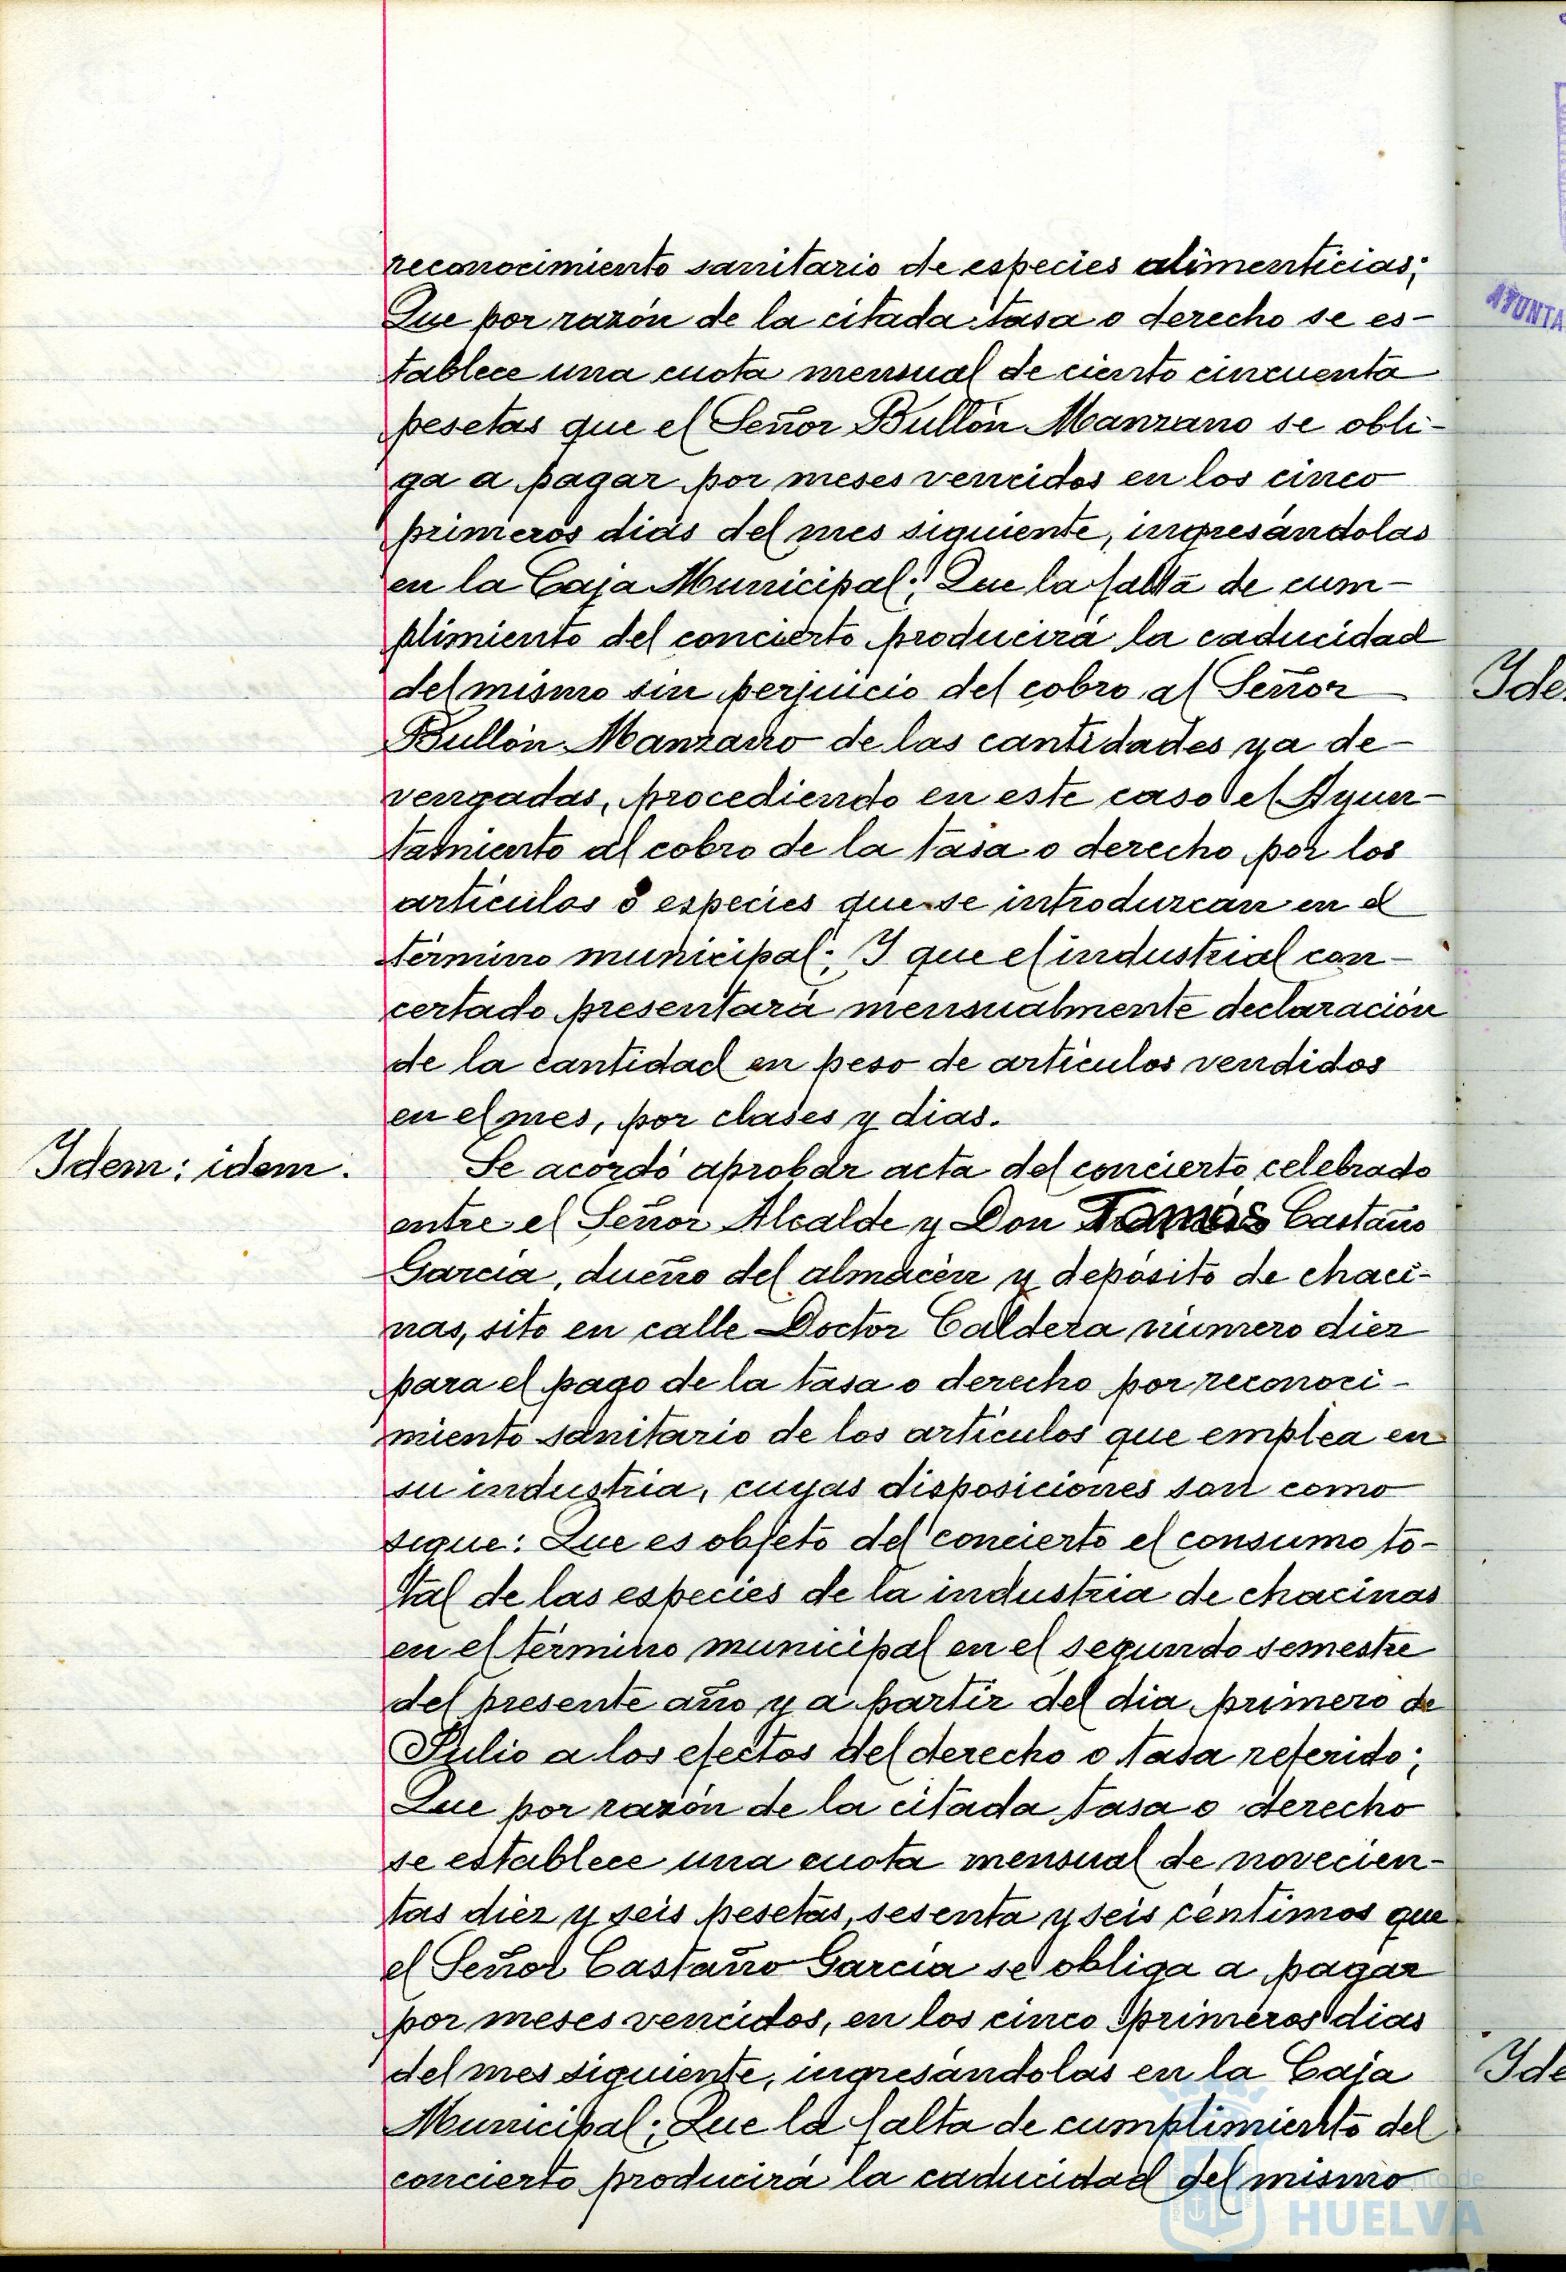 reconocimiento sanitario de especies alimenticias;
Que por razón de la citada tasa o derecho se es-
tablece una cuota mensual de ciento cincuenta
pesetas que el Señor Bullón Manzano se obli-
ga a pagar por meses vencidos en los cinco
primeros dias del mes siguiente, ingresándolas
en la Caja Municipal; Que la falta de cum-
plimiento del concierto producirá la caducidad
del mismo sin perjuicio del cobro al Señor
Bullón Manzano de las cantidades ya de-
vengadas, procediendo en este caso el Ayun-
tamiento al cobro de la tasa o derecho por los
artículos o especies que se introduzcan en el
término municipal; Y que el industrial con-
certado presentará mensualmente declaración
de la cantidad en peso de artículos vendidos
en el mes, por clases y dias.
Idem: idem.
Se acordó aprobar acta del concierto celebrado
entre el Señor Alcalde y Don Tomás Castaño
García, dueño del almacén y depósito de chaci-
nas, sito en calle Doctor Caldera número diez
para el pago de la tasa o derecho por reconoci-
miento sanitario de los artículos que emplea en
su industria, cuyas disposiciones son como
sigue: Que es objeto del concierto el consumo to-
tal de las especies de la industria de chacinas
en el término municipal en el segundo semestre
del presente año y a partir del dia primero de
Julio a los efectos del derecho o tasa referido;
Que por razón de la citada tasa o derecho
se establece una cuota mensual de novecien-
tas diez y seis pesetas, sesenta y seis céntimos que
el Señor Castaño García se obliga a pagar
por meses vencidos, en los cinco primeros dias
del mes siguiente, ingresándolas en la Caja
Municipal; Que la falta de cumplimiento del
concierto producirá la caducidad del mismo
AYUNTA
Ide
Ide
HUELVA